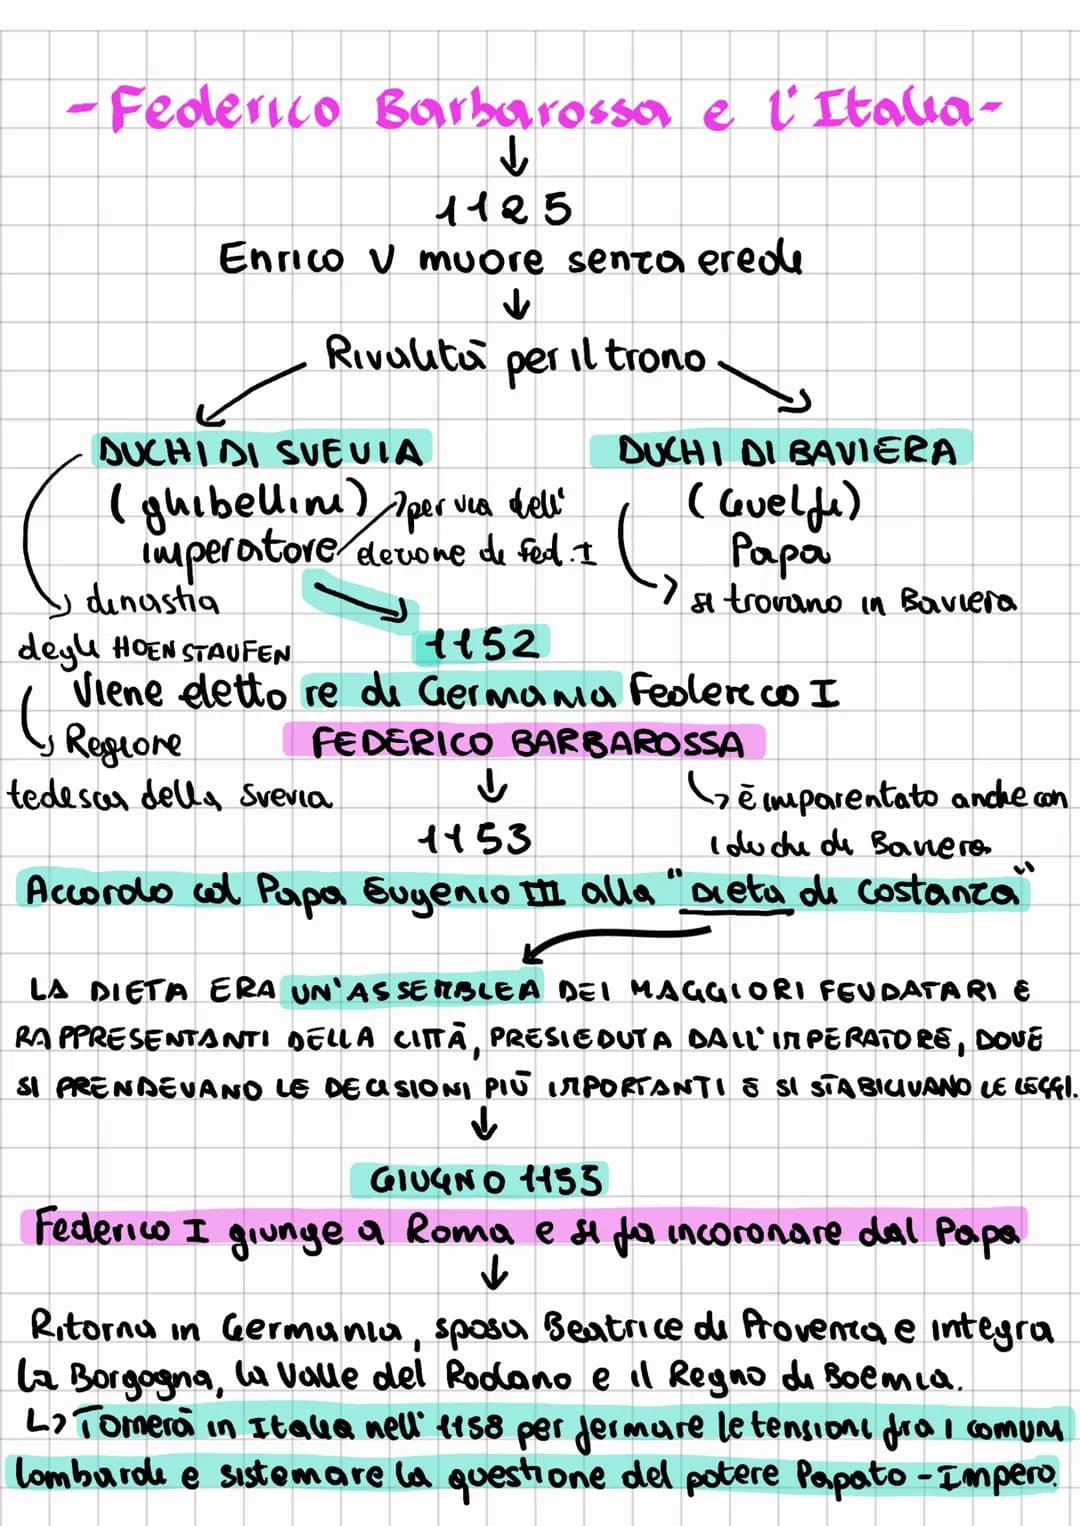 - Federico Barbarossa e l'Italia -
1125
Enrico V muore senza erede
Rivalità per il trono
DUCHI DI SVEVIA
(ghibellini)
imperatore
per via dell'
elezione di Fed. I
dinastia
degli HOENSTAUFEN
Regione
tedesca della Svevia
DUCHI DI BAVIERA
(Guelfi)
Papa
si trovano in Baviera
1152
Viene eletto re di Germania Federico I
FEDERICO BARBAROSSA
è imparentato anche con
i duchi di Baviera
1153
Accordo col Papa Eugenio III alla "Dieta di Costanza"
LA DIETA ERA UN'ASSEMBLEA DEI MAGGIORI FEUDATARI E
RAPPRESENTANTI DELLA CITTÀ, PRESIEDUTA DALL'IMPERATORE, DOVE
SI PRENDEVANO LE DECISIONI PIÙ IMPORTANTI E SI STABILIVANO LE LEGGI.
GIUGNO 1155
Federico I giunge a Roma e si fa incoronare dal Papa
Ritorna in Germania, sposa Beatrice di Provenza e integra
la Borgogna, la Valle del Rodano e il Regno di Boemia.
Tornerà in Italia nell' 1158 per fermare le tensioni fra i comuni
lombardi e sistemare la questione del potere Papato - Impero.